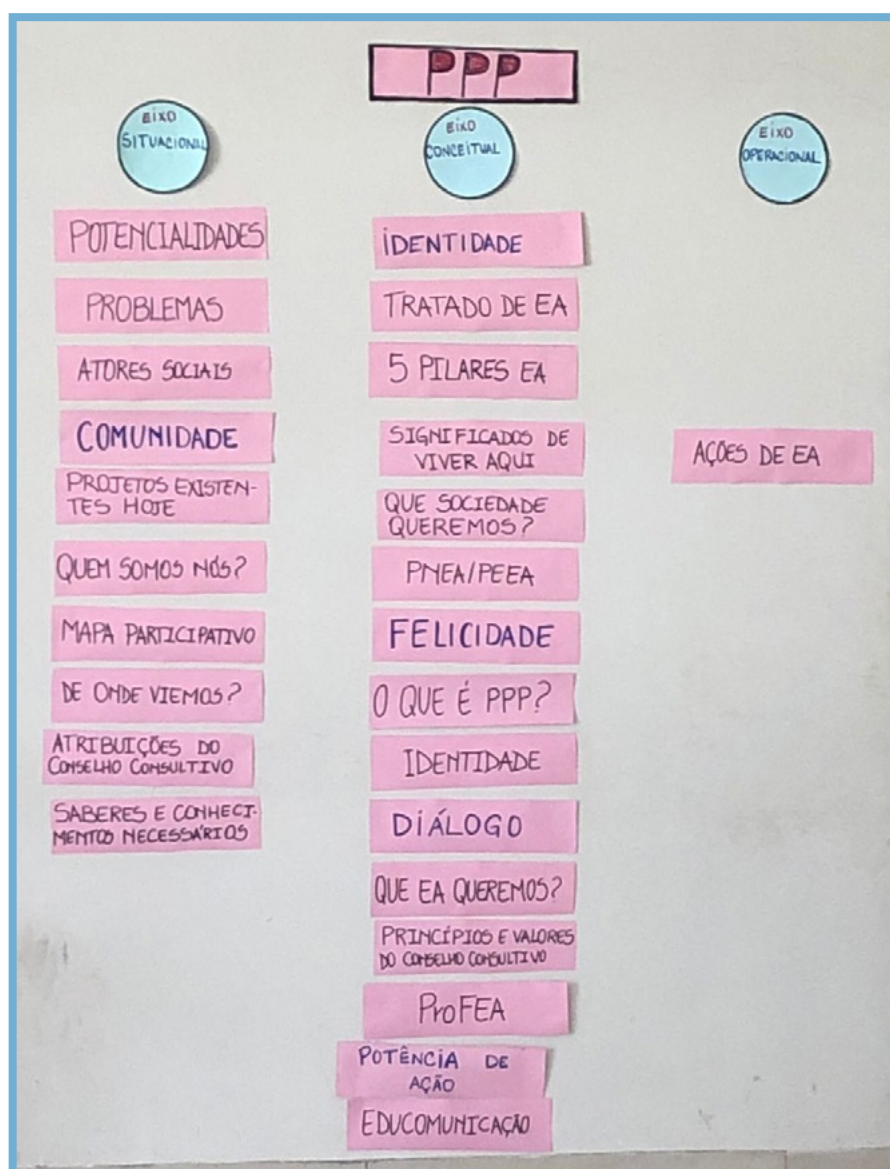 PPP
EIXO
SITUACIONAL
POTENCIALIDADES
PROBLEMAS
ATORES SOCIAIS
COMUNIDADE
PROJETOS EXISTEN-
TES HOJE
QUEM SOMOS NÓS?
MAPA PARTICIPATIVO
DE ONDE VIEMOS?
ATRIBUIÇÕES DO
CONSELHO CONSULTIVO
SABERES E CONHECI-
MENTOS NECESSÁRIOS
EIXO
CONCEITUAL
IDENTIDADE
TRATADO DE EA
5 PILARES EA
SIGNIFICADOS DE
VIVER AQUI
QUE SOCIEDADE
QUEREMOS?
PNEA/PEEA
FELICIDADE
O QUE É PPP?
IDENTIDADE
DIÁLOGO
QUE EA QUEREMOS?
PRINCÍPIOS E VALORES
DO CONSELHO CONSULTIVO
ProFEA
POTÊNCIA DE
AÇÃO
EDUCOMUNICAÇÃO
EIXO
OPERACIONAL
AÇÕES DE EA